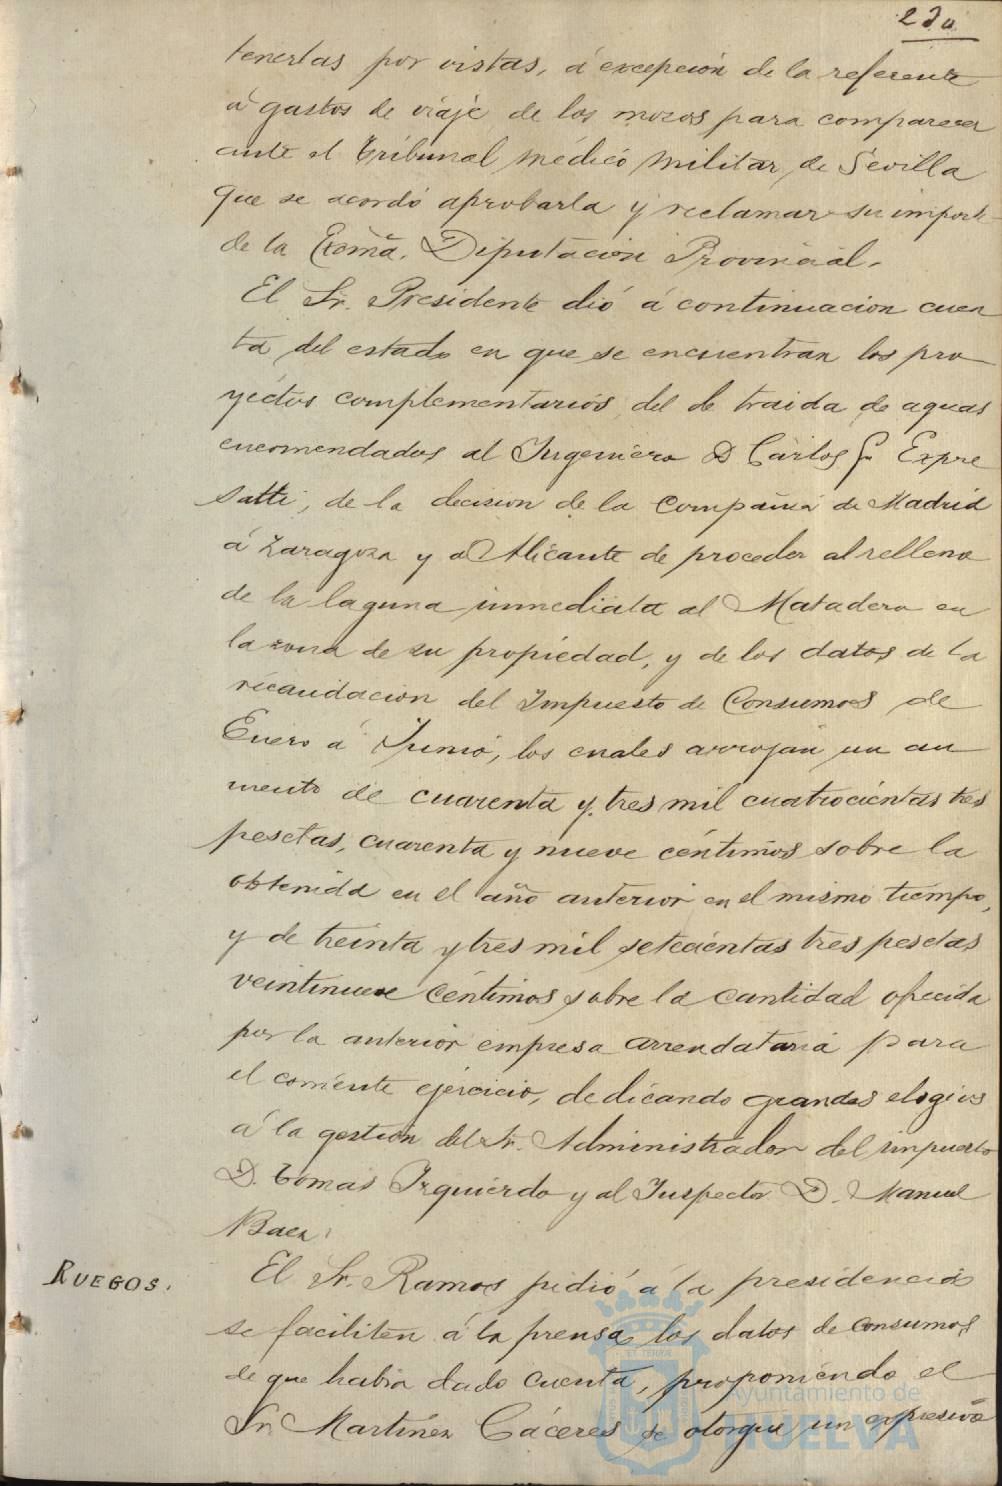 tenerlas por vistas, á excepción de la referente
á gastos de viaje de los mozos para comparecer
ante el Tribunal médico militar de Sevilla
que se acordó aprobarla y reclamar su importe
de la Excmã. Diputación Provincial.
El Sr. Presidente dió á continuacion cuen
ta del estado en que se encuentran los pro
yectos complementarios del de traida de aguas
encomendados al Ingeniero D Carlos Expre
satti, de la decision de la Compañia de Madrid
á Zaragoza y á Alicante de proceder al relleno
de la laguna inmediata al Matadero en
la zona de su propiedad, y de los datos de la
recaudacion del Impuesto de Consumos de
Enero á Junio, los cuales arrojan un au
mento de cuarenta y tres mil cuatrocientas tres
pesetas, cuarenta y nueve céntimos sobre la
obtenida en el año anterior en el mismo tiempo,
y de treinta y tres mil setecientas tres pesetas
veintinueve céntimos sobre la cantidad ofrecida
por la anterior empresa arrendataria para
el corriente ejercicio, dedicando grandes elogios
á la gestión del Sr. Administrador del impuesto
D. Tomás Izquierdo y al Inspector D. Manuel
Baez.
RUEGOS.
El Sr. Ramos pidió á la presidencia
se faciliten á la prensa los datos de consumos
de que habia dado cuenta, proponiendo el
Sr. Martínez Cáceres se otorgue un expresivo
Ayuntamiento de
HUELVA